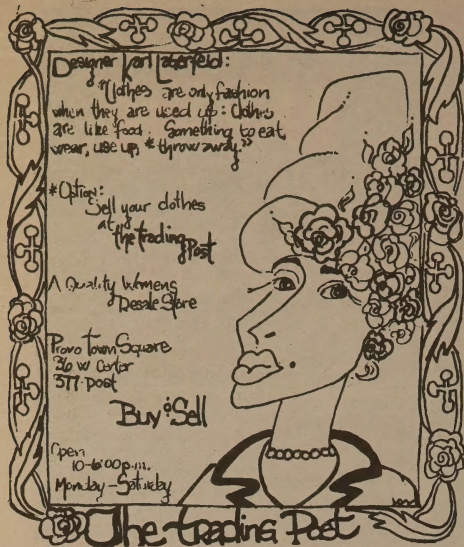 Designer Karl Lagerfeld:
"Clothes are only fashion
when they are used up: Clothes
are like food. Something to eat,
wear, use up, *throw away."
*Option:
Sell your clothes
at
the trading
Post
A Quality Womens
Resale Store
Provo Town Square
36 W Center
377-post
Buy & Sell
Open
10-6:00 p.m.
Monday-Saturday
The trading Post